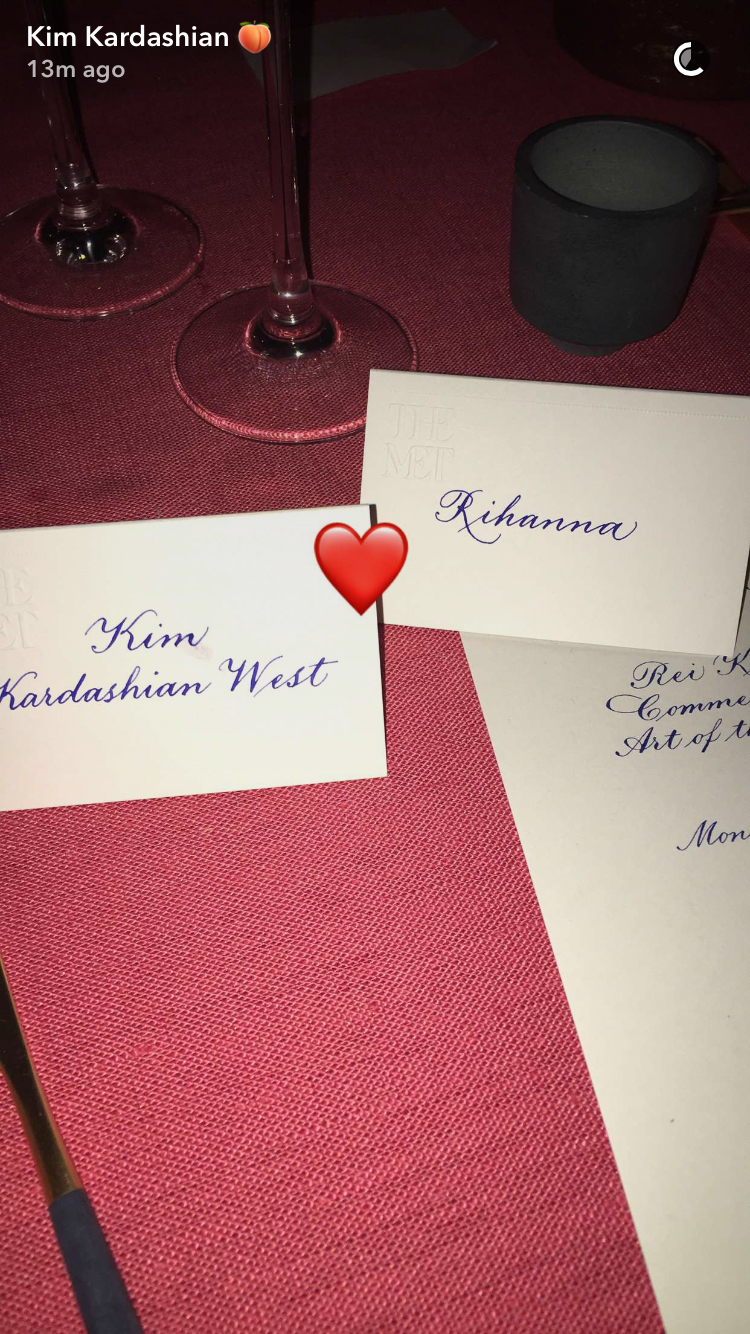 Kim Kardashian 🍑
13m ago
THE
MET
Rihanna
Kim
Kardashian West
Rei K
Comme
Art of t
Mon